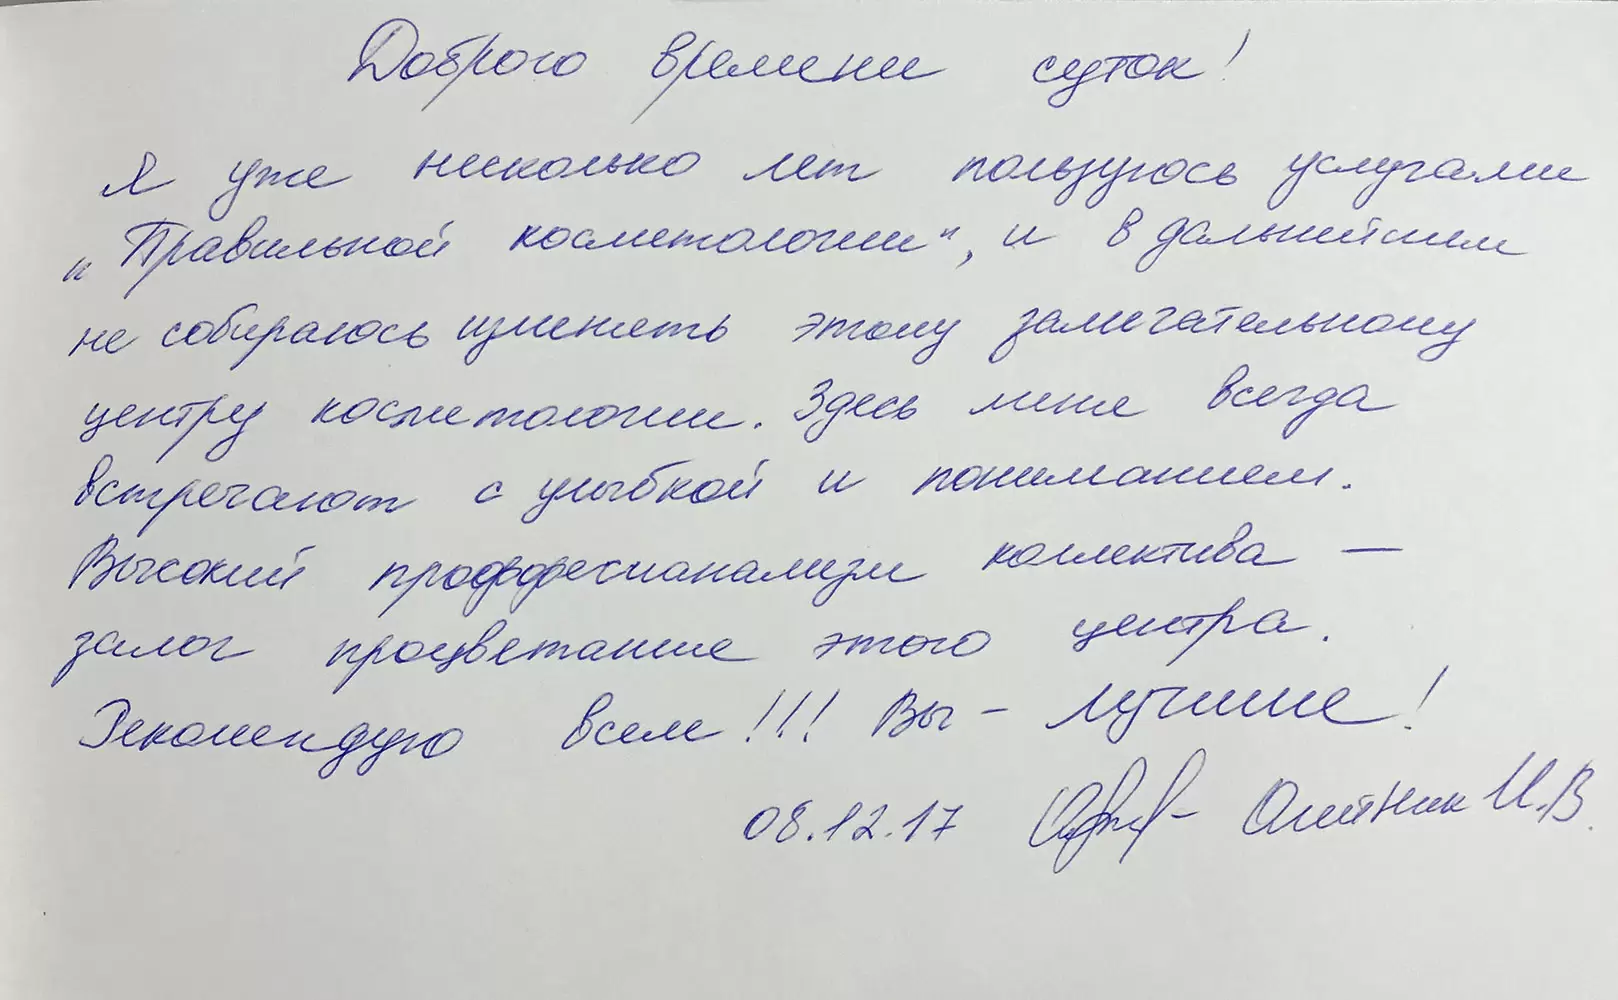 Доброго времени суток!
Я уже несколько лет пользуюсь услугами
„Правильной косметологии“, и в дальнейшем
не собираюсь изменять этому замечательному
центру косметологии. Здесь меня всегда
встречают с улыбкой и пониманием.
Высокий проффесионализм коллектива —
залог процветание этого центра.
Рекомендую всем!!! Вы – лучшие!
08.12.17 Олейник И.В.